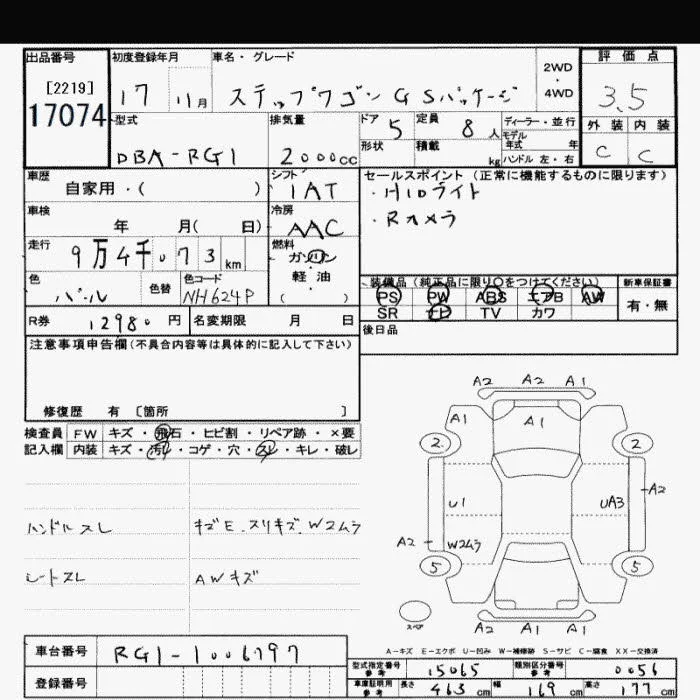 出品番号 初度登録年月 車名・グレード 評価点
[2219] 17 11月 ステップワゴン GSパッケージ 2WD・4WD 3.5
17074 型式 排気量 ドア 5 定員 8人 ディーラー・並行 外装 内装
DBA-RG1 2000cc 形状 積載 kg モデル年式 年 ハンドル 左・右 C C
車歴 自家用・( ) シフト 1AT セールスポイント (正常に機能するものに限ります)
・HIDライト
車検 年 月( 日) 冷房 AAC ・Rカメラ
走行 9万4千073km 燃料 ガソリン・軽油( )
色 パール 色替 色コード NH624P 装備品 (純正品に限り○をつけてください) 新車保証書
PS PW ABS エアB AW 有・無
SR ナビ TV カワ
R券 12980円 名変期限 月 日 後日品
注意事項申告欄(不具合内容等は具体的に記入して下さい)
修復歴 有 〔箇所 〕
検査員 FW キズ・飛石・ヒビ割・リペア跡・×要
記入欄 内装 キズ・汚れ・コゲ・穴・スレ・キレ・破レ
A2 A2 A1
A1 A1
2 2
U1 UA3 A2
A2 W2ムラ
5 5
スペア A2 A1 A1
ハンドルスレ キズE.スリキズ.W2ムラ
シートスレ AWキズ
A-キズ E-エクボ U-凹み W-補修跡 S-サビ C-腐食 XX-交換済
車台番号 RG1-1006797
登録番号
型式指定番号参考 15065 類別区分番号参考 0056
車庫証明用参考 長さ 463cm 幅 169cm 高さ 177cm